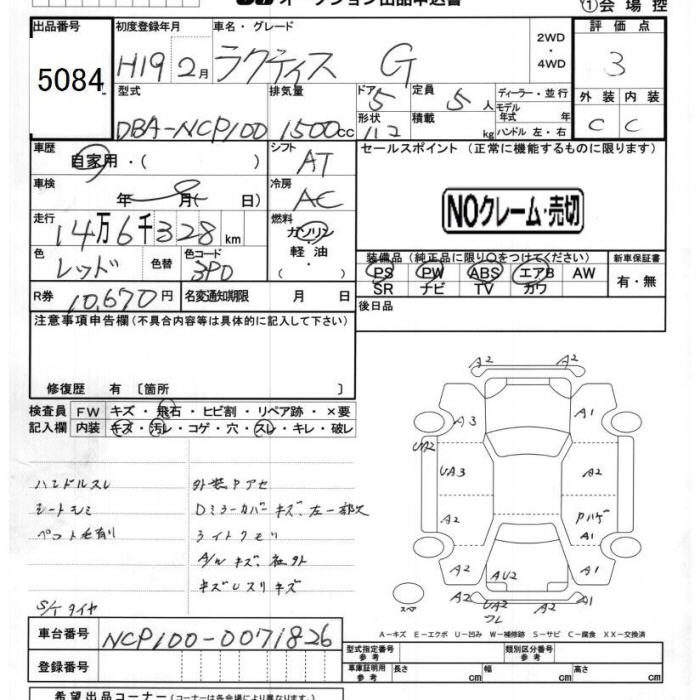 ①会場控
出品番号 初度登録年月 車名・グレード 2WD ・ 4WD 評価点
5084 H19 2月 ラクティス G 3
型式 排気量 ドア 5 定員 5人 ディーラー・並行 外装 内装
DBA-NCP100 1500cc 形状 積載 kg モデル年式 年 ハンドル 左・右 C C
車歴 自家用・( ) シフト AT セールスポイント (正常に機能するものに限ります)
車検 年 月( 日) 冷房 AC NOクレーム・売切
走行 14万6千328km 燃料 ガソリン・軽油・( )
色 レッド 色替 色コード 3P0
装備品 (純正品に限り○をつけてください) 新車保証書
PS PW ABS エアB AW 有・無
SR ナビ TV カワ
R券 10,670円 名変通知期限 月 日 後日品
注意事項申告欄 (不具合内容等は具体的に記入して下さい)
修復歴 有 [箇所 ]
検査員 FW キズ・飛石・ヒビ割・リペア跡・×要
記入欄 内装 キズ・汚レ・コゲ・穴・スレ・キレ・破レ
ハンドルスレ 外装Pアセ
シートシミ Dミラーカバーキズ、左一部欠
ライトクモリ
A/Wキズ、社外
キズUスリキズ
S/Tタイヤ
A2 A2
A3 A1
UA2
UA3 A2
A2 Pハゲ
A1
A2 AU2 A1
A2 UA2 A2
スペア
A-キズ E-エクボ U-凹み W-補修跡 S-サビ C-腐食 XX-交換済
車台番号 NCP100-0071826
型式指定番号 参考 類別区分番号 参考
登録番号 車庫証明用 参考 長さ cm 幅 cm 高さ cm
希望出品コーナー (コーナーは各会場により